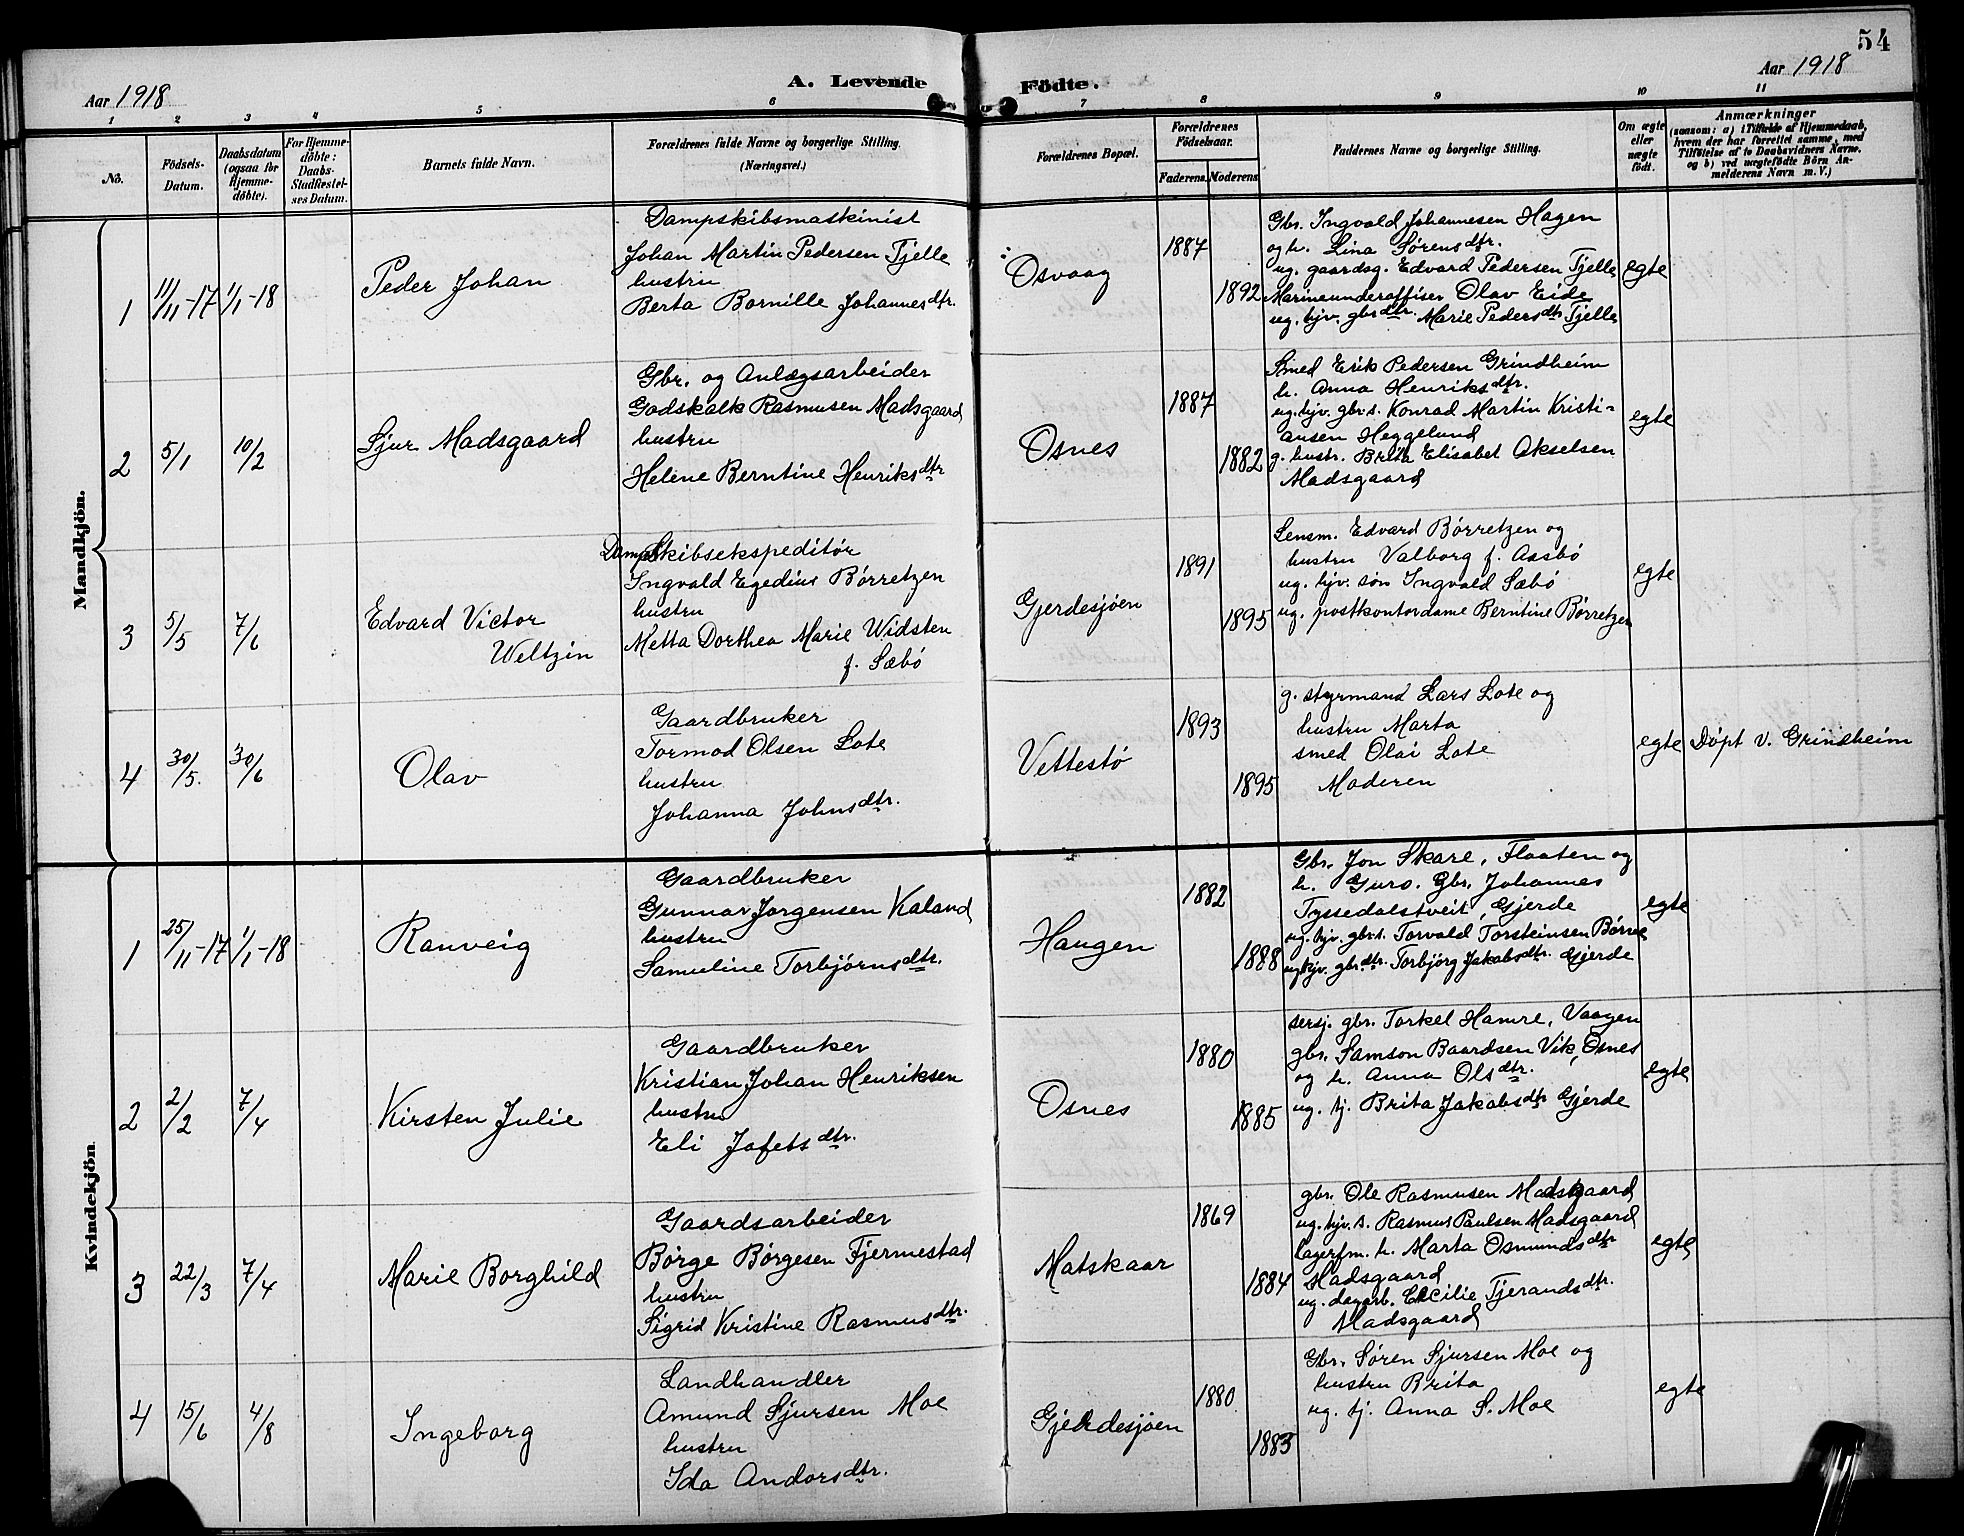 54
Aar 1918
A. Levende Födte.
Aar 1918
1 2 3 4 5 6 7 8 9 10 11
No.
Födsels-Datum.
Daabsdatum (ogsaa for Hjemmedöbte).
For Hjemmedöbte: Daabs-Stadfæstelses Datum.
Barnets fulde Navn.
Forældrenes fulde Navne og borgerlige Stilling. (Næringsvei.)
Forældrenes Bopæl.
Forældrenes Födselsaar.
Faderens. Moderens.
Faddernes Navne og borgerlige Stilling.
Om ægte eller uægte födt.
Anmærkninger
(saasom: a) i Tilfælde af Hjemmedaab, hvem der har forrettet samme, med Tilföielse af to Daabsvidners Navne, og b) ved uægtefödte Börn Anmelderens Navn m. V.)
Mandkjön.
1 11/11-17 1/1-18
Peder Johan
Dampskibsmaskinist
Johan Martin Pedersen Tjelle
hustru
Berta Bornille Johannesdtr.
Osvaag
1887
1892
Gbr. Ingvald Johannesen Hagen
og h. Lina Sørensdtr.
ug. gaardsg. Edvard Pedersen Tjelle
Marineunderoffiser Olav Eide
ug. hjv. gbrdtr. Marie Pedersdtr Tjelle
egte
2 5/1 10/2
Sjur Madsgaard
Gbr. og Anlægsarbeider
Godskalk Rasmusen Madsgaard
hustru
Helene Berntine Henriksdtr
Osnes
1887
1882
Smed Erik Pedersen Grindheim
h. Anna Henriksdtr.
ug. hjv. gbr.s. Konrad Martin Kristi-
ansen Heggelund
g. hustr. Brita Elisabet Akselsen
Madsgaard
egte
3 5/5 7/6
Edvard Victor
Weltzin
Dampskibsekspeditør
Ingvald Egedius Børretzen
hustru
Metta Dorthea Marie Widsten
f. Sæbö
Gjerdesjøen
1891
1895
Lensm. Edvard Børretzen og
hustru Valborg f. Aasbö
ug. hjv. søn Ingvald Sæbö
ug. postkontordame Berntine Børretzen
egte
4 30/5. 30/6
Olav
Gaardbruker
Tormod Olsen Lote
hustru
Johanna Johnsdtr.
Vettestø
1893
1895
g. styrmand Lars Lote og
hustru Marta
smed Olai Lote
Moderen
egte
Døpt v. Grindheim
Kvindekjön
1 25/11-17 1/1-18
Ranveig
Gaardbruker
Gunnar Jørgensen Kaland
hustru
Samuline Torbjørnsdtr.
Haugen
1882
1888
Gbr. Jon Skare, Flaaten og
h. Guro. Gbr. Johannes
Tyssedalstveit, Gjerde
ug. hjv. gbr.s. Torvald Torsteinsen Børree
ug hjv. gbr.dtr. Torbjørg Jakobsdtr. Gjerde
egte
2 2/2 7/4
Kirsten Julie
Gaardbruker
Kristian Johan Henriksen
hustru
Eli Jafetsdtr.
Osnes
1880
1885
sersj. gbr. Torkel Hamre, Vaagen
gbr. Samson Baardsen Vik, Osnes
og h. Anna Olsdtr.
ug. tj. Brita Jakobsdtr Gjerde
egte
3 22/3 7/4
Marie Borghild
Gaardsarbeider
Børge Børgesen Fjermestad
hustru
Sigrid Kristine Rasmusdtr.
Matskaar
1869
1884
gbr. Ole Rasmusen Madsgaard
ug. hjv. s. Rasmus Paulsen Madsgaard
lagerfm. h. Marta Osmundsdtr
Madsgaard
ug. dagarb. Cecilie Tjerandsdtr.
Madsgaard
egte
4 15/6 4/8
Ingeborg
Landhandler
Amund Sjursen Moe
hustru
Ida Andorsdtr.
Gjerdesjøen
1880.
1883
Gbr. Søren Sjursen Moe og
hustru Brita
ug. tj. Anna S. Moe
egte